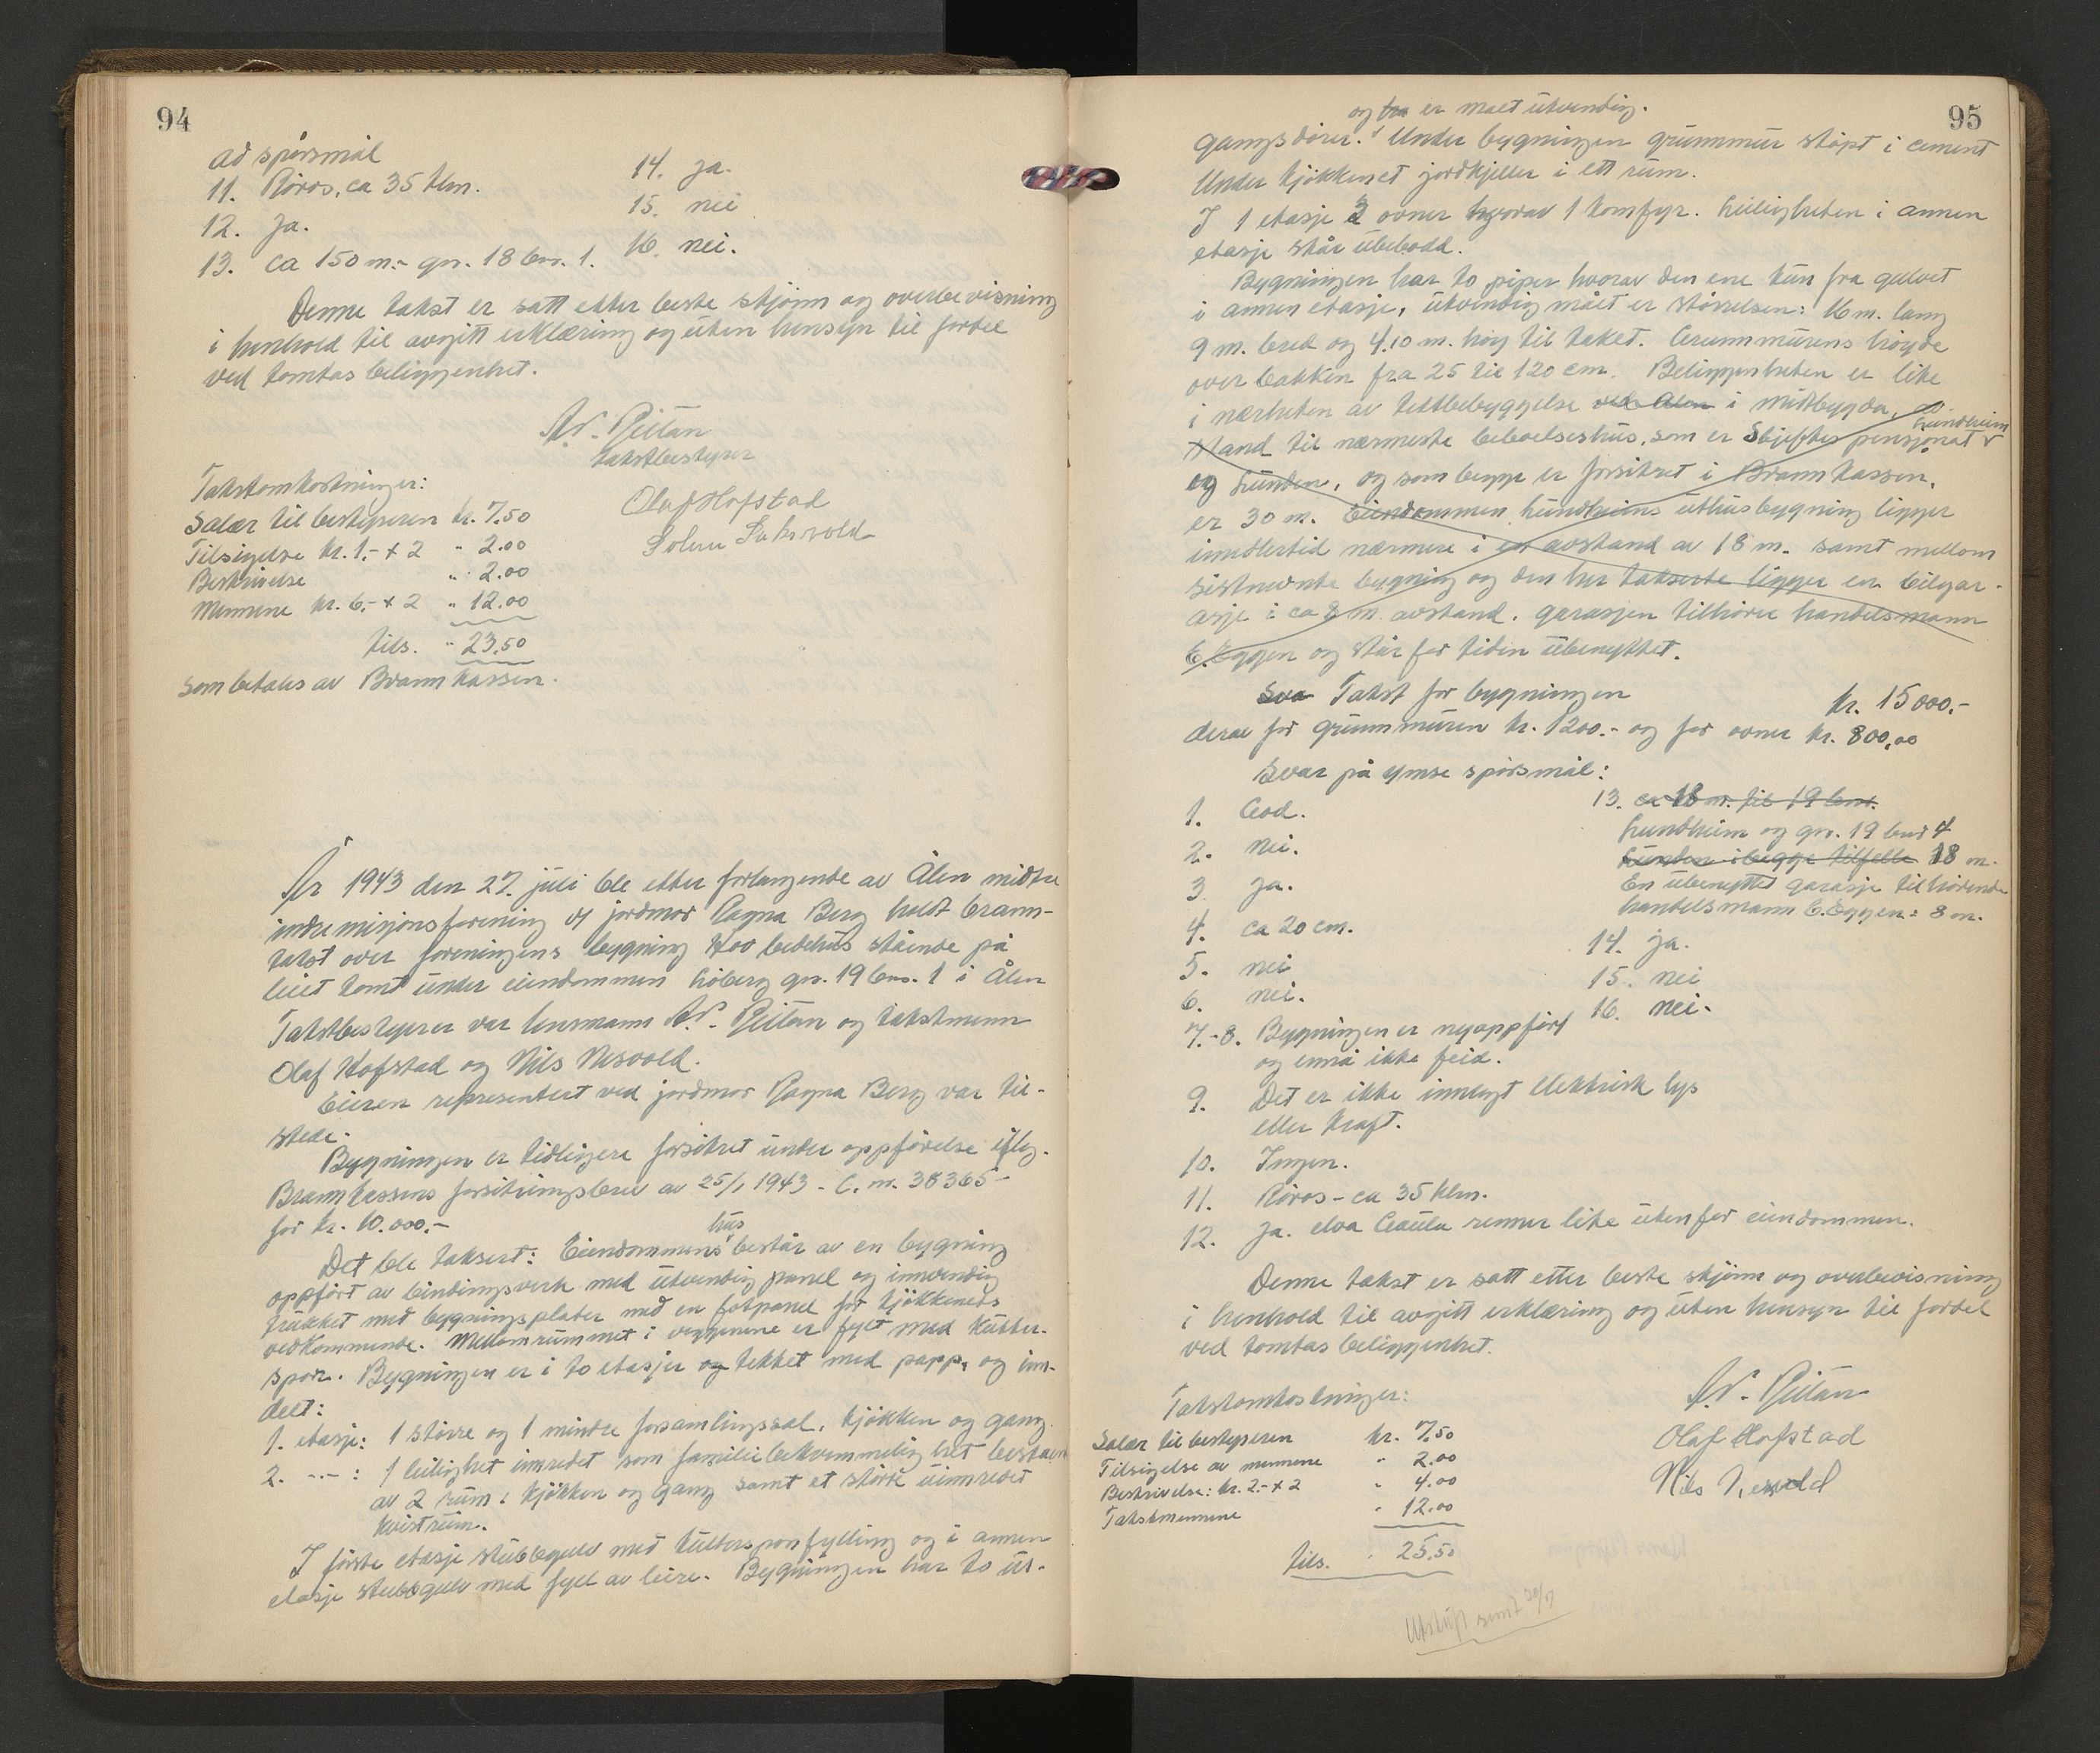 94
ad spörsmål
11. Röros, ca 35 klm.
12. Ja.
13. ca 150 m.- gr. 18 bnr. 1.
14. ja.
15. nei
16. nei.
Denne takst er satt etter beste skjönn og overbevisning
i henhold til avgitt erklæring og uten hensyn til fordel
ved tomtas beliggenhet.
takstbestyrer
Olaf Hofstad
Takstomkostninger:
Salær til bestyreren kr. 7.50
Tilsigelse kr. 1.- x 2 " 2.00
Beskrivelse " 2.00
Mennene kr. 6.- x 2 " 12.00
tils. " 23.50
som betales av Brannkassen.
År 1943 den 27. juli ble etter forlangende av Ålen midtre
indremisjonsforening v/ jordmor Ragna Berg holdt brann-
takst over foreningens bygning bedehus stående på
leiet tomt under eiendommen gr. 19 bnr. 1 i Ålen
Takstbestyrer var lensmann og takstmenn
Olaf Hofstad og Nils Nesvold.
Eieren representert ved jordmor Ragna Berg var til-
stede.
Bygningen er tidligere forsikret under oppförelse iflg.
Brannkassens forsikringsbrev av 25/1 1943 - C. nr. 38365 -
for kr. 10.000.-
Det ble taksert: Eiendommens hus består av en bygning
oppfört av bindingsverk med utvendig panel og innvendig
trukket med bygningsplater med en fotpanel for kjökkenets
vedkommende. Mellomrummet i veggene er fylt med kutter-
spon. Bygningen er i to etasjer og tekket med papp, og inn-
delt:
1. etasje: 1 större og 1 mindre forsamlingssal, kjökken og gang.
2. -..- : 1 leilighet innredet som familiebekvemmelighet bestående
av 2 rum: kjökken og gang samt et större uinnredet
kvistrum.
I förste etasje stubbgulv med kutterspon fylling og i annen
etasje stubbgulv med fyll av leire. Bygningen har to ut-
95
og er malt utvendig.
gangsdörer. Under bygningen grunnmur stöpt i cement
Under kjökkenet jordkjeller i ett rum.
I 1 etasje 2 ovner hvorav 1 komfyr. Leiligheten i annen
etasje står ubebodd.
Bygningen har to piper hvorav den ene kun fra gulvet
i annen etasje, utvendig målt er störrelsen: 16 m. lang
9 m. bred og 4.10 m. höy til taket. Grunnmurens höyde
over bakken fra 25 til 120 cm. Beliggenheten er like
i nærheten av tettbebyggelse ved Ålen i midtbygda,
stand til nærmeste beboelseshus, som er pensjonat Lundheim
og Lunden, og som begge er forsikret i Brannkassen,
er 30 m. Eiendommen Lundheims uthusbygning ligger
imidlertid nærmere i en avstand av 18 m. samt mellom
sistnevnte bygning og den her takserte ligger en bilgar-
asje i ca 8 m. avstand. Garasjen tilhörer handelsmann
E. Eggen og står for tiden ubenyttet.
Sva Takst for bygningen kr. 15000.-
derav for grunnmuren kr. 1200.- og for ovner kr. 800,00
Svar på ymse spörsmål:
1. God.
2. nei.
3. ja.
4. ca 20 cm.
5. nei
6. nei.
7.-8. Bygningen er nyoppfört
og ennå ikke feid.
9. Det er ikke innlagt elektrisk lys
eller kraft.
10. Ingen.
11. Röros - ca 35 klm.
12. Ja. elva Gaula renner like utenfor eiendommen.
13. ca 18 m. til 19 bnr.
Lundheim og gr. 19 bnr 4
Lunden i begge tilfelle 18 m.
En ubenyttet garasje tilhörende
handelsmann E. Eggen: 8 m.
14. ja.
15. nei
16. nei.
Denne takst er satt etter beste skjönn og overbevisning
i henhold til avgitt erklæring og uten hensyn til fordel
ved tomtas beliggenhet.
Takstomkostninger:
Salær til bestyreren kr. 7.50
Tilsigelse av mennene " 2.00
Beskrivelse: kr. 2.- x 2 " 4.00
Takstmennene " 12.00
tils. " 25.50
Olaf Hofstad
Nils Nesvold
Utskrift sendt